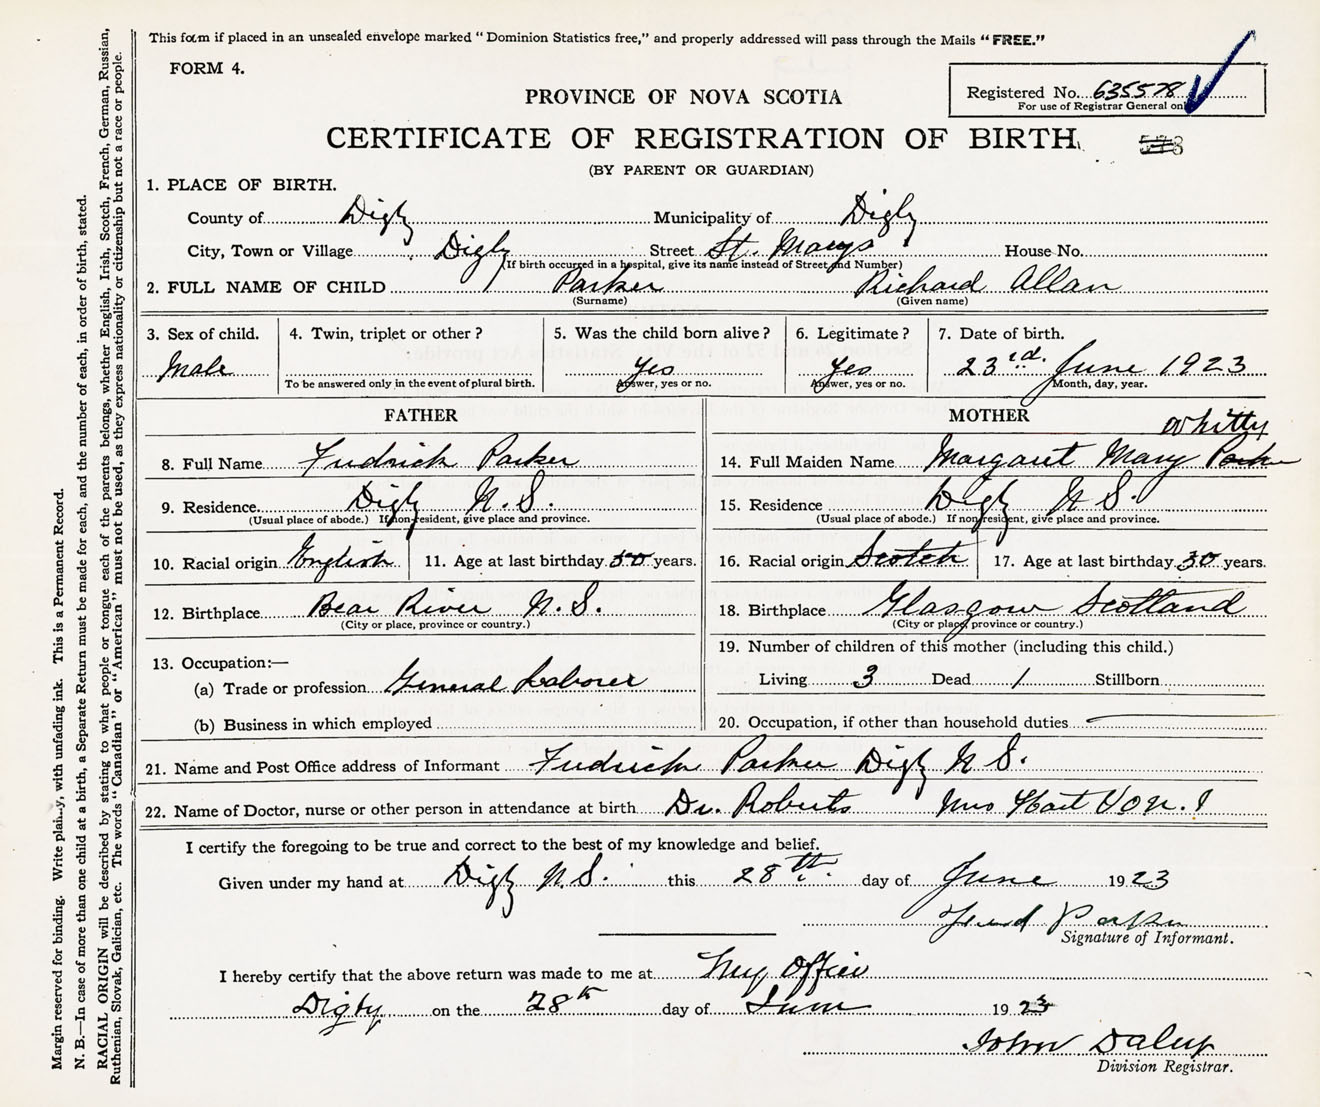 This form if placed in an unsealed envelope marked "Dominion Statistics free," and properly addressed will pass through the Mails "FREE."
FORM 4.
Registered No. 635578
For use of Registrar General only
PROVINCE OF NOVA SCOTIA
CERTIFICATE OF REGISTRATION OF BIRTH
(BY PARENT OR GUARDIAN)
1. PLACE OF BIRTH.
County of Digby Municipality of Digby
City, Town or Village Digby Street St. Marys House No.
(If birth occurred in a hospital, give its name instead of Street and Number)
2. FULL NAME OF CHILD Parker Richard Allan
(Surname) (Given name)
3. Sex of child. Male
4. Twin, triplet or other?
To be answered only in the event of plural birth.
5. Was the child born alive? Yes
Answer, yes or no.
6. Legitimate? Yes
Answer, yes or no.
7. Date of birth.
23rd. June 1923
Month, day, year.
FATHER
8. Full Name Fredrick Parker
9. Residence Digby N.S.
(Usual place of abode.) If non-resident, give place and province.
10. Racial origin English 11. Age at last birthday 50 years.
12. Birthplace Bear River N.S.
(City or place, province or country.)
13. Occupation:—
(a) Trade or profession General Laborer
(b) Business in which employed
MOTHER
Whitty
14. Full Maiden Name Margaret Mary Parker
15. Residence Digby N.S.
(Usual place of abode.) If non-resident, give place and province.
16. Racial origin Scotch 17. Age at last birthday 30 years.
18. Birthplace Glasgow Scotland
(City or place, province or country.)
19. Number of children of this mother (including this child.)
Living 3 Dead 1 Stillborn
20. Occupation, if other than household duties
21. Name and Post Office address of Informant Fredrick Parker Digby N.S.
22. Name of Doctor, nurse or other person in attendance at birth Dr. Roberts Mrs Hart V.O.N.
I certify the foregoing to be true and correct to the best of my knowledge and belief.
Given under my hand at Digby N.S. this 28th. day of June 1923
Fred Parker
Signature of Informant.
I hereby certify that the above return was made to me at My Office
Digby on the 28th day of June 1923
John Daley
Division Registrar.
Margin reserved for binding. Write plainly, with unfading ink. This is a Permanent Record.
N. B.—In case of more than one child at a birth, a Separate Return must be made for each, and the number of each, in order of birth, stated.
RACIAL ORIGIN will be described by stating to what people or tongue each of the parents belongs, whether English, Irish, Scotch, French, German, Russian,
Ruthenian, Slovak, Galician, etc. The words "Canadian" or "American" must not be used, as they express nationality or citizenship but not a race or people.